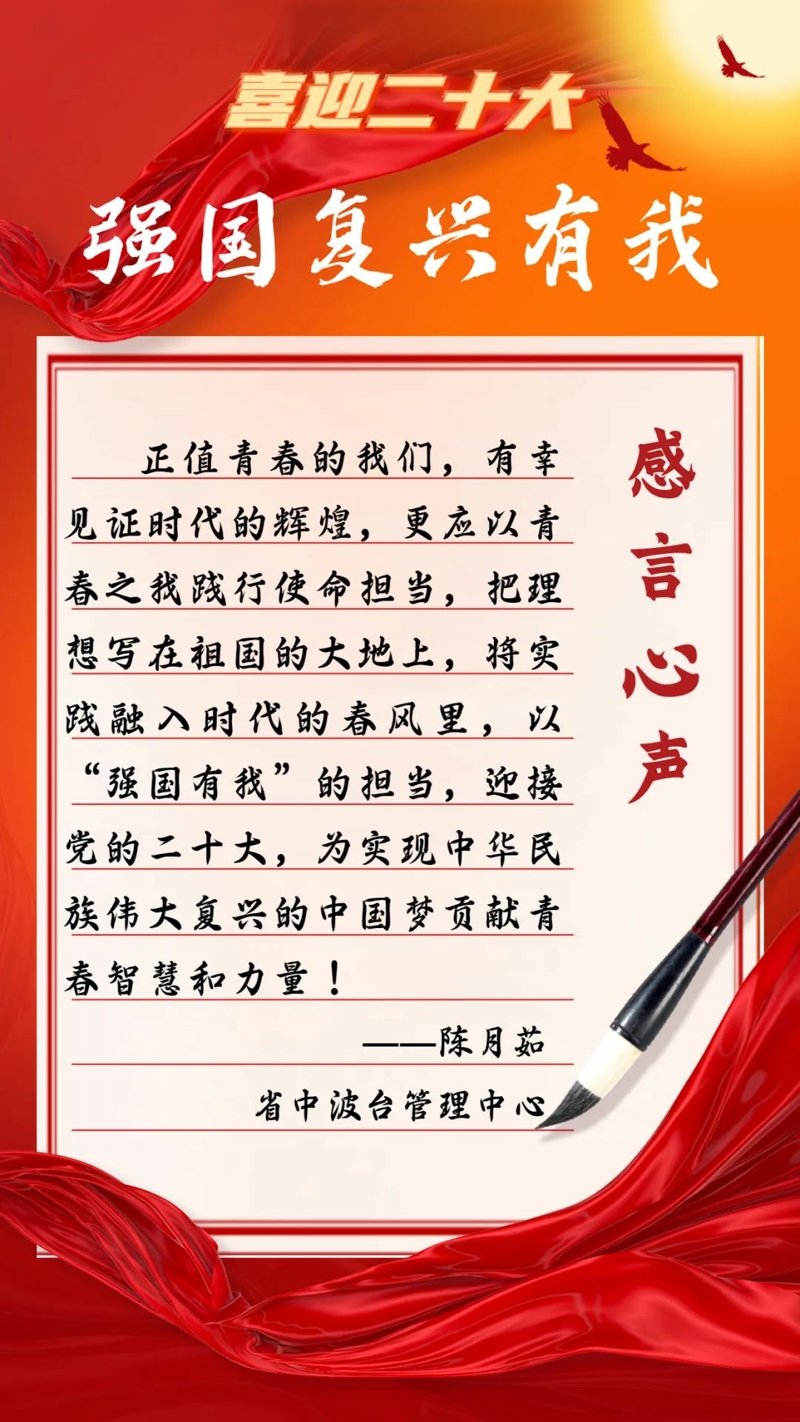 喜迎二十大
强国复兴有我
正值青春的我们，有幸
见证时代的辉煌，更应以青
春之我践行使命担当，把理
想写在祖国的大地上，将实
践融入时代的春风里，以
“强国有我”的担当，迎接
党的二十大，为实现中华民
族伟大复兴的中国梦贡献青
春智慧和力量！
——陈月茹
省中波台管理中心
感言心声